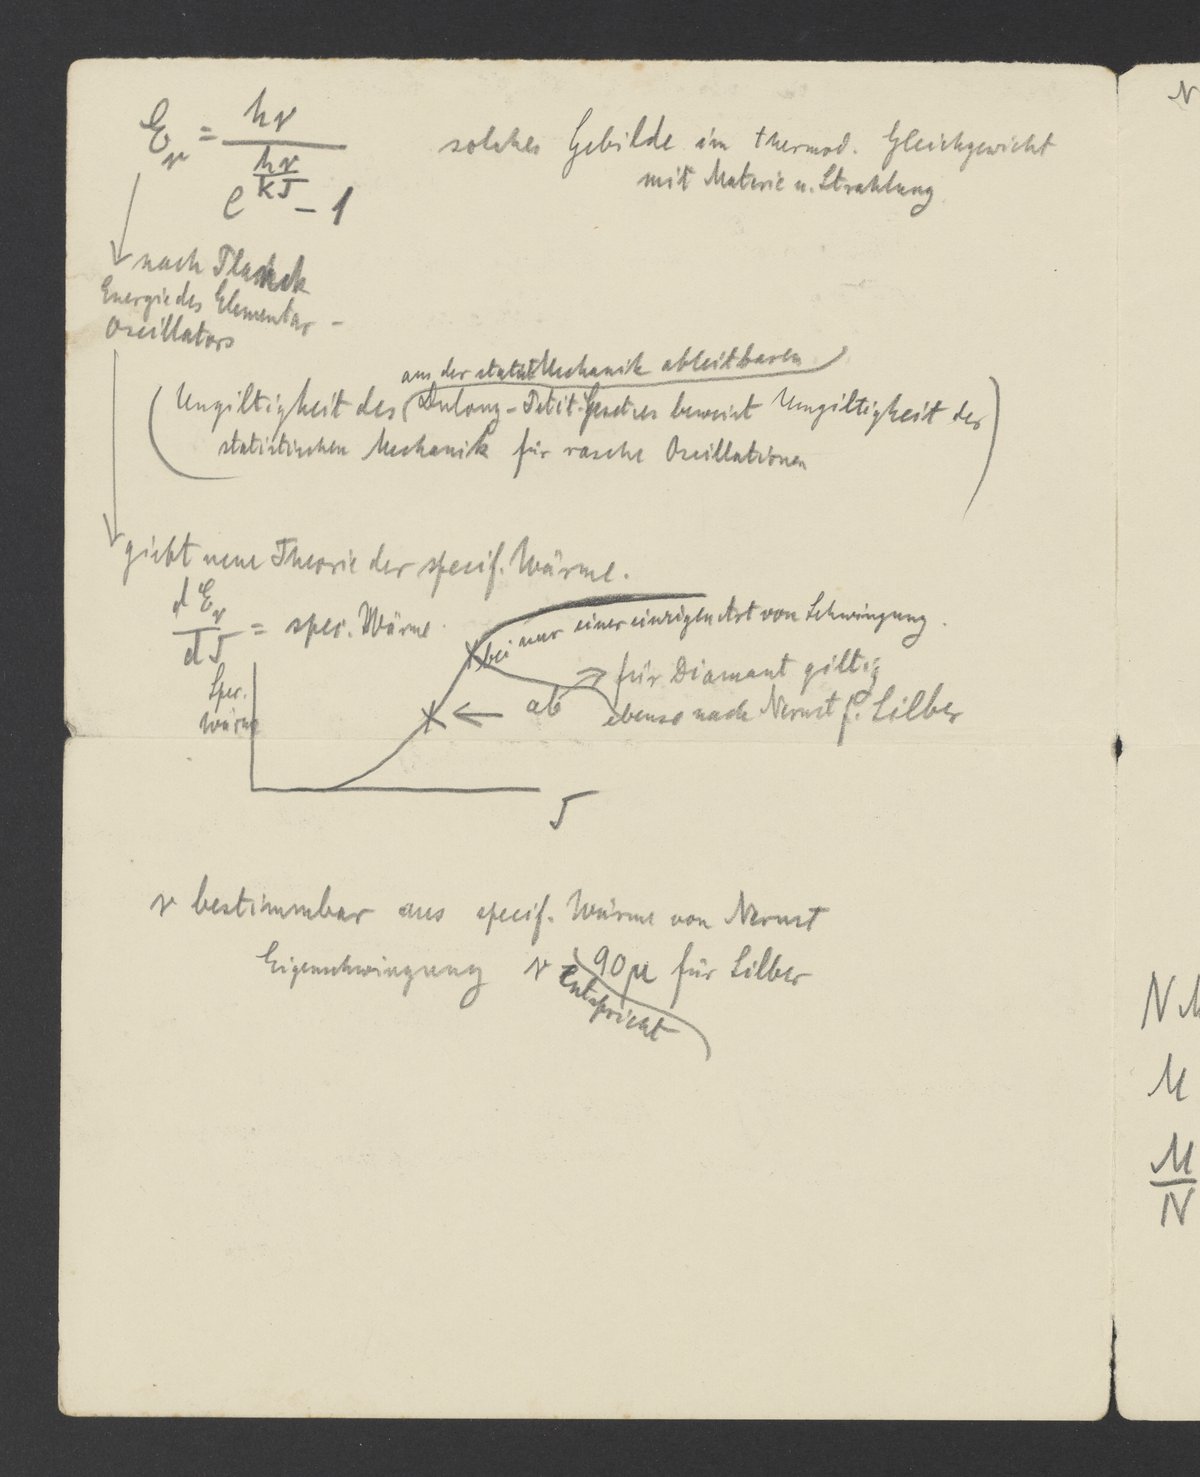 E_ν = hν / (e^{hν/kT} − 1)
solches Gebilde im thermod. Gleichgewicht
mit Materie u. Strahlung
nach Planck
Energie des Elementar-
Oscillators
aus der statist Mechanik ableitbaren
(Ungiltigkeit des Dulong-Petit. Gesetzes beweist Ungiltigkeit der
statistischen Mechanik für rasche Oscillationen)
giebt neue Theorie der specif. Wärme.
dE_ν/dT = spez. Wärme.
bei nur einer einzigen Art von Schwingung.
für Diamant giltig
ab
ebenso nach Nernst f. Silber
Spez.
Wärme
T
ν bestimmbar aus specif. Wärme von Nernst
Eigenschwingung ν 90μ für Silber
entspricht
N
N M
M
M/N